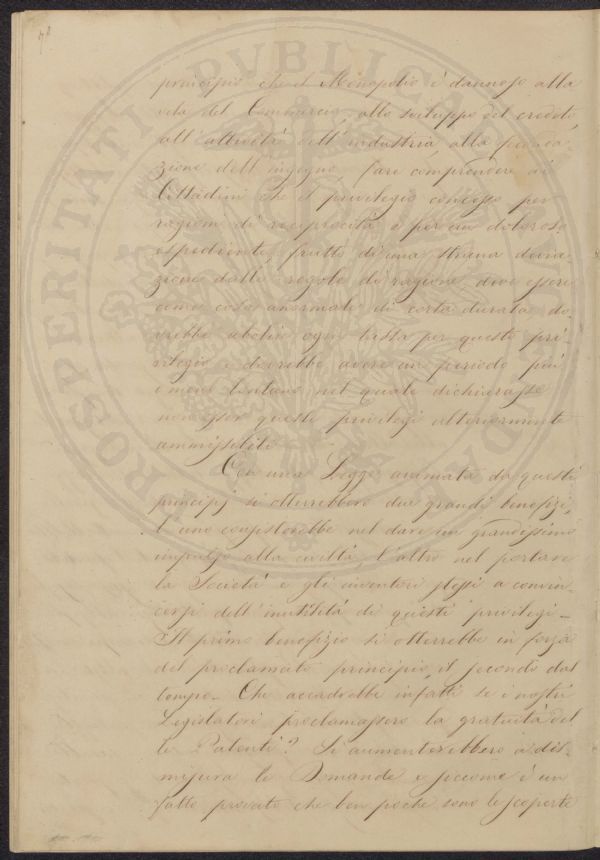 principio che il Monopolio è dannoso alla
vita del Commercio, allo sviluppo del credito,
all'attività dell'industria, alla feconda
zione dell'ingegno, fare comprendere ai
Cittadini che il privilegio concesso per
ragioni di reciprocità o per un doloroso
espediente, frutto di una strana devia
zione dalle regole di ragione, deve essere
come cosa anormale di corta durata do
vrebbe abolire ogni tassa per questo pri-
vilegio e dovrebbe avere un periodo più
o meno lontano nel quale dichiarasse
non esser questi privilegi ulteriormente
ammissibili
Con una Legge animata da questi
principj si otterrebbero due grandi benefizi,
l'uno consisterebbe nel dare un grandissimo
impulso alla civiltà l'altro nel portare
la Società e gli inventori stessi a convin-
cersi dell'inutilità di questi privilegi_
Il primo benefizio si otterrebbe in forza
del proclamato principio, il secondo dal
tempo_ Che accadrebbe infatti se i nostri
Legislatori proclamassero la gratuità del
le Patenti? Si aumenterebbero a dis-
misura le Domande e siccome è un
fatto provato che ben poche sono le scoperte
PROSPERITATI PVBLICAE